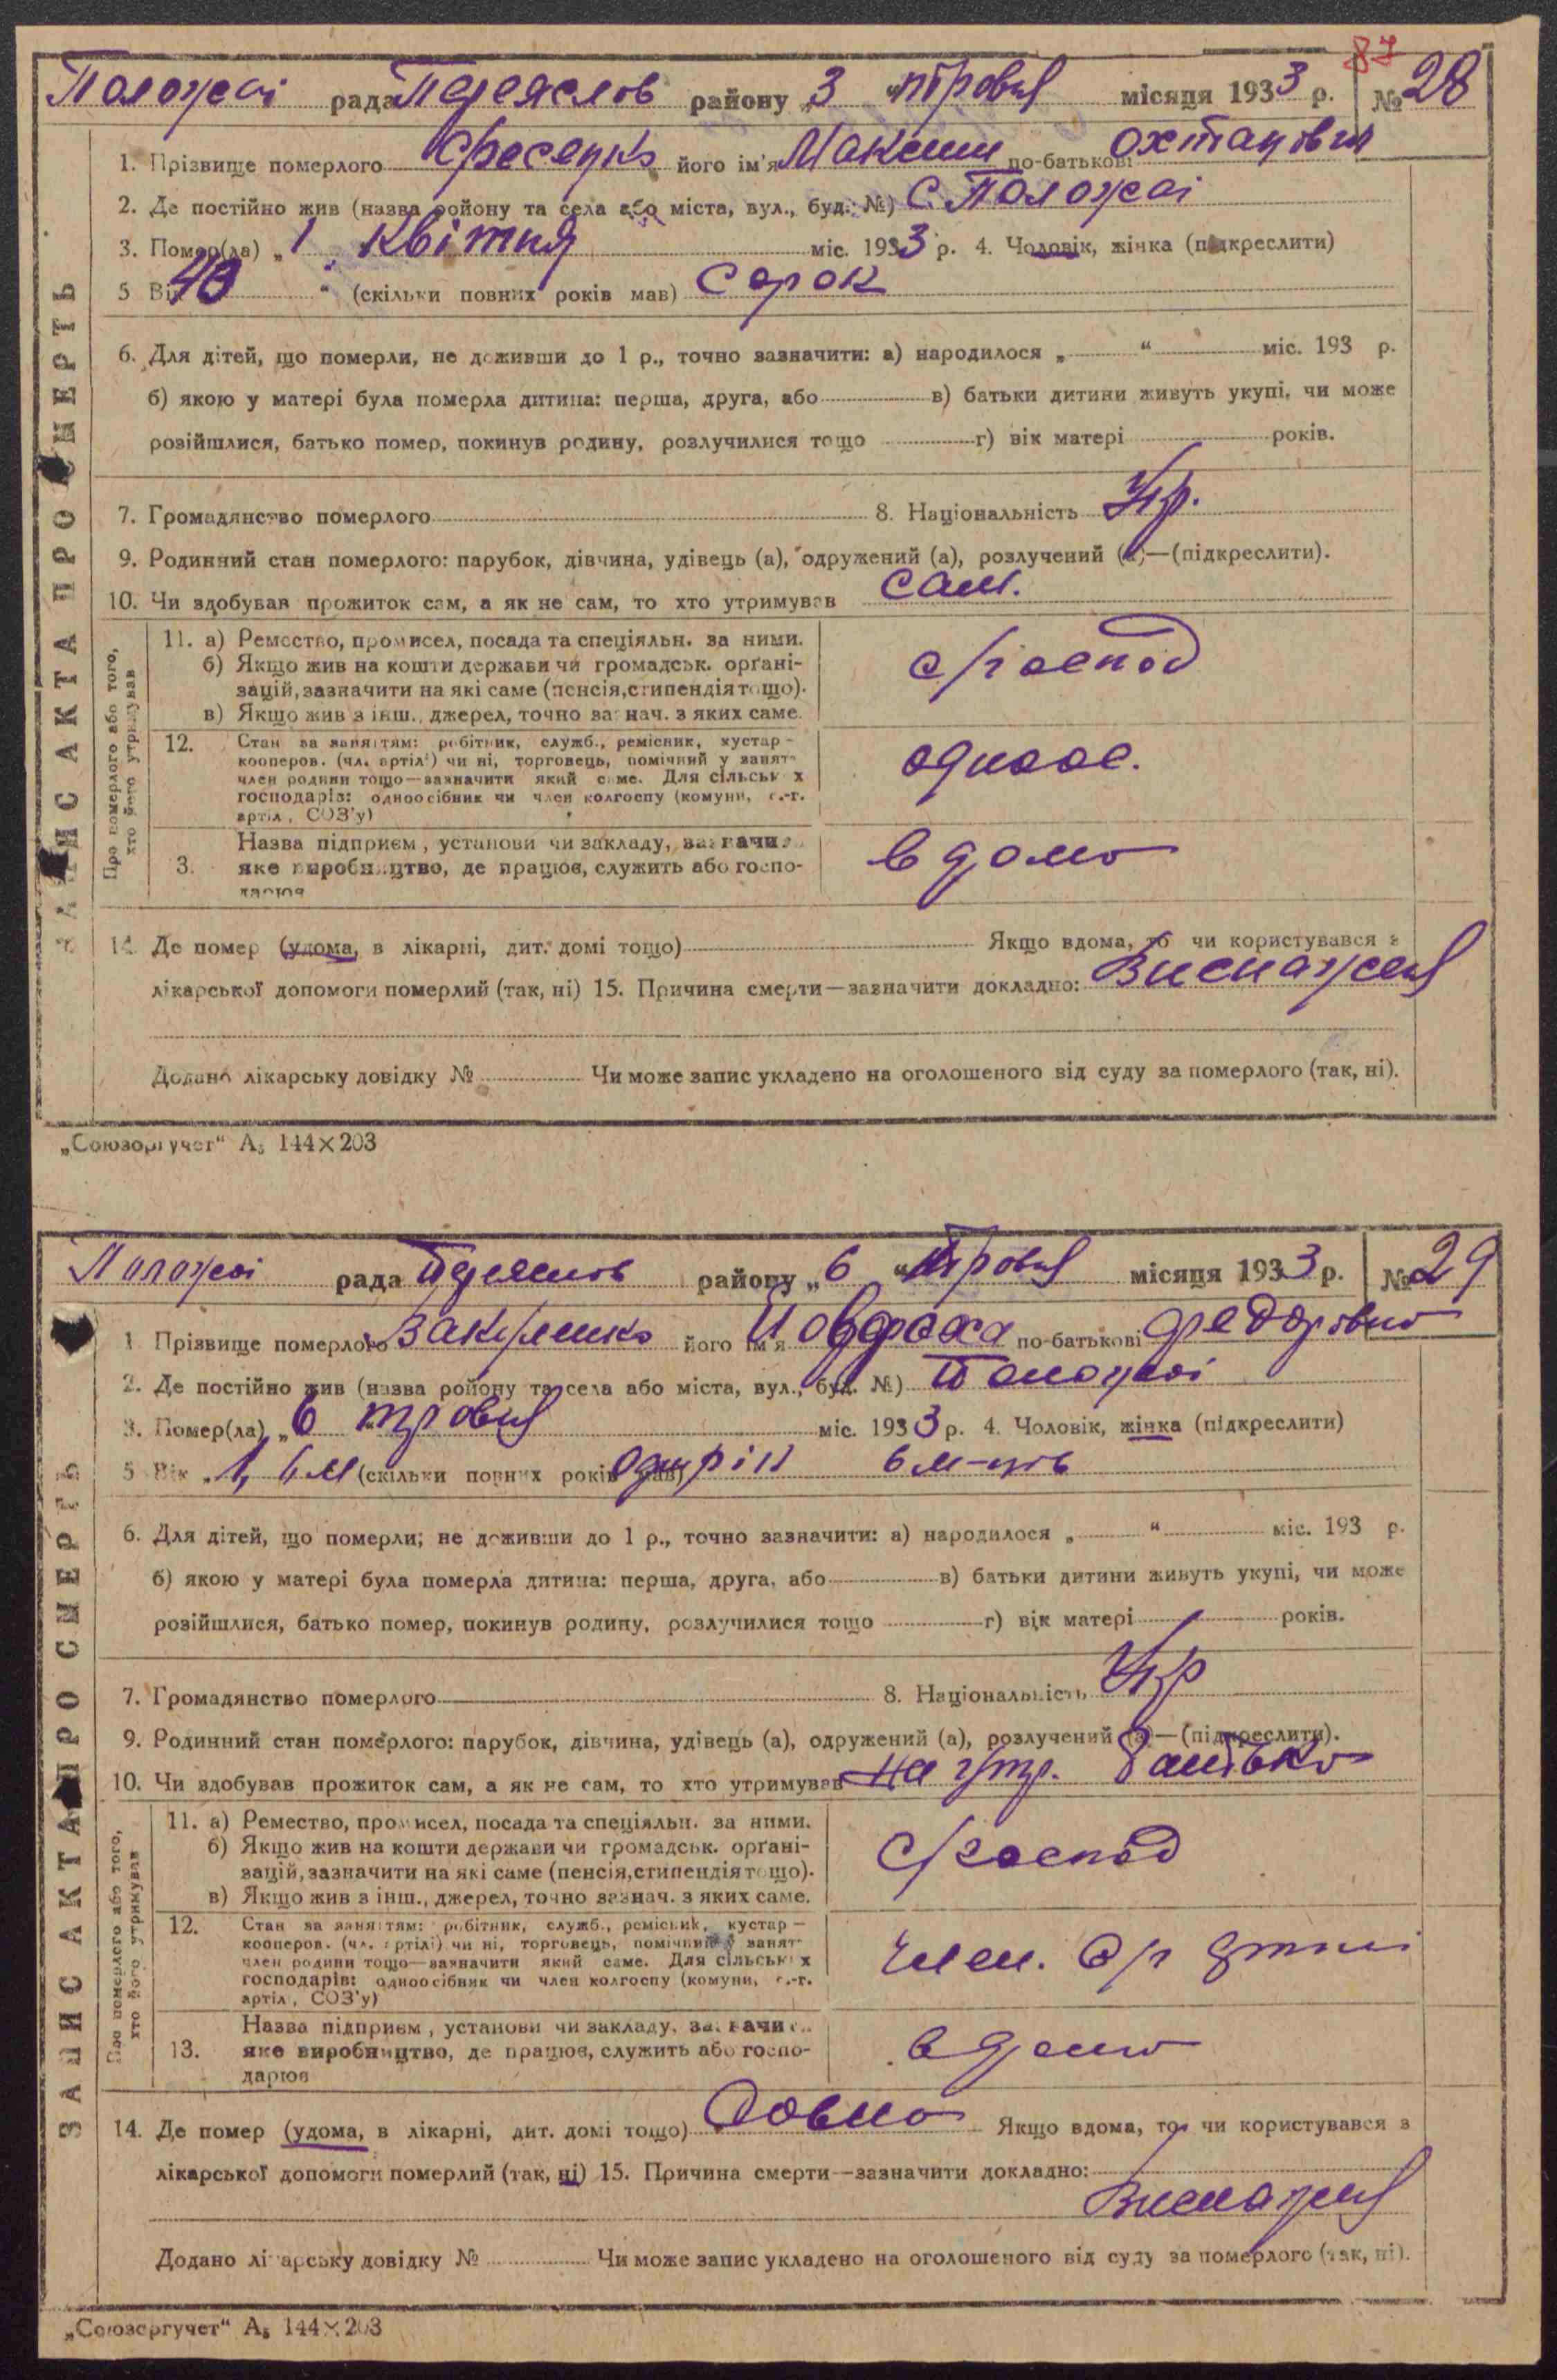 87
Положаї рада Переяслов району „3 “ травня місяця 1933 р. № 28
1. Прізвище померлого Фесенко його ім'я Максим по-батькові
2. Де постійно жив (назва ройону та села або міста, вул., буд. №) с. Положаї
3. Помер(ла) „1 Квітня міс. 1933 р. 4. Чоловік, жінка (підкреслити)
5 Вік 40 “ (скільки повних років мав) Сорок
6. Для дітей, що померли, не доживши до 1 р., точно зазначити: а) народилося „ “ міс. 193 р.
б) якою у матері була померла дитина: перша, друга, або в) батьки дитини живуть укупі, чи може
розійшлися, батько помер, покинув родину, розлучилися тощо г) вік матері років.
7. Громадянство померлого 8. Національність Укр.
9. Родинний стан померлого: парубок, дівчина, удівець (а), одружений (а), розлучений (а)—(підкреслити).
10. Чи здобував прожиток сам, а як не сам, то хто утримував сам.
Про померлого або того, хто його утримував
11. а) Ремество, промисел, посада та спеціяльн. за ними.
б) Якщо жив на кошти держави чи громадськ. орґані-
зацій, зазначити на які саме (пенсія, стипендія тощо).
в) Якщо жив з інш., джерел, точно зазнач. з яких саме.
с/господ
12. Стан за заняттям: робітник, служб., ремісник, кустар –
кооперов. (чл. артілі) чи ні, торговець, помічний у занят-
член родини тощо—зазначити який саме. Для сільських
господарів: одноосібник чи член колгоспу (комуни, с.-г.
артіл, СОЗ'у)
одноос.
Назва підприєм, установи чи закладу, зазначити
3. яке виробництво, де працює, служить або госпо-
дарює
вдома
14. Де помер (удома, в лікарні, дит. домі тощо) Якщо вдома, то чи користувався з
лікарської допомоги померлий (так, ні) 15. Причина смерти—зазначити докладно: Виснаження
Додано лікарську довідку № Чи може запис укладено на оголошеного від суду за померлого (так, ні).
ЗАПИС АКТА ПРО СМЕРТЬ
„Союзоргучет“ А₅ 144×203
Положаї рада Переяслов району „6 “ травня місяця 1933 р. № 29
1 Прізвище померлого його ім'я по-батькові Федоровна
2. Де постійно жив (назва ройону та села або міста, вул., буд. №) Положаї
3. Помер(ла) „6 травня міс. 1933 р. 4. Чоловік, жінка (підкреслити)
5 Вік „1, 6 м (скільки повних років мав) один рік 6 м-ців
6. Для дітей, що померли; не доживши до 1 р., точно зазначити: а) народилося „ “ міс. 193 р.
б) якою у матері була померла дитина: перша, друга, або в) батьки дитини живуть укупі, чи може
розійшлися, батько помер, покинув родину, розлучилися тощо г) вік матері років.
7. Громадянство померлого 8. Національність Укр
9. Родинний стан померлого: парубок, дівчина, удівець (а), одружений (а), розлучений (а)—(підкреслити).
10. Чи здобував прожиток сам, а як не сам, то хто утримував на утр. батька
Про померлого або того, хто його утримував
11. а) Ремество, промисел, посада та спеціяльн. за ними.
б) Якщо жив на кошти держави чи громадськ. орґані-
зацій, зазначити на які саме (пенсія, стипендія тощо).
в) Якщо жив з інш., джерел, точно зазнач. з яких саме.
с/господ
12. Стан за заняттям: робітник, служб., ремісник, кустар –
кооперов. (чл. артілі) чи ні, торговець, помічний у занят-
член родини тощо—зазначити який саме. Для сільських
господарів: одноосібник чи член колгоспу (комуни, с.-г.
артіл, СОЗ'у)
член. с/г артілі
Назва підприєм, установи чи закладу, зазначити
13. яке виробництво, де працює, служить або госпо-
дарює
вдома
14. Де помер (удома, в лікарні, дит. домі тощо) Якщо вдома, то чи користувався з
лікарської допомоги померлий (так, ні) 15. Причина смерти—зазначити докладно:
Виснаження
Додано лікарську довідку № Чи може запис укладено на оголошеного від суду за померлого (так, ні).
ЗАПИС АКТА ПРО СМЕРТЬ
„Союзоргучет“ А₅ 144×203